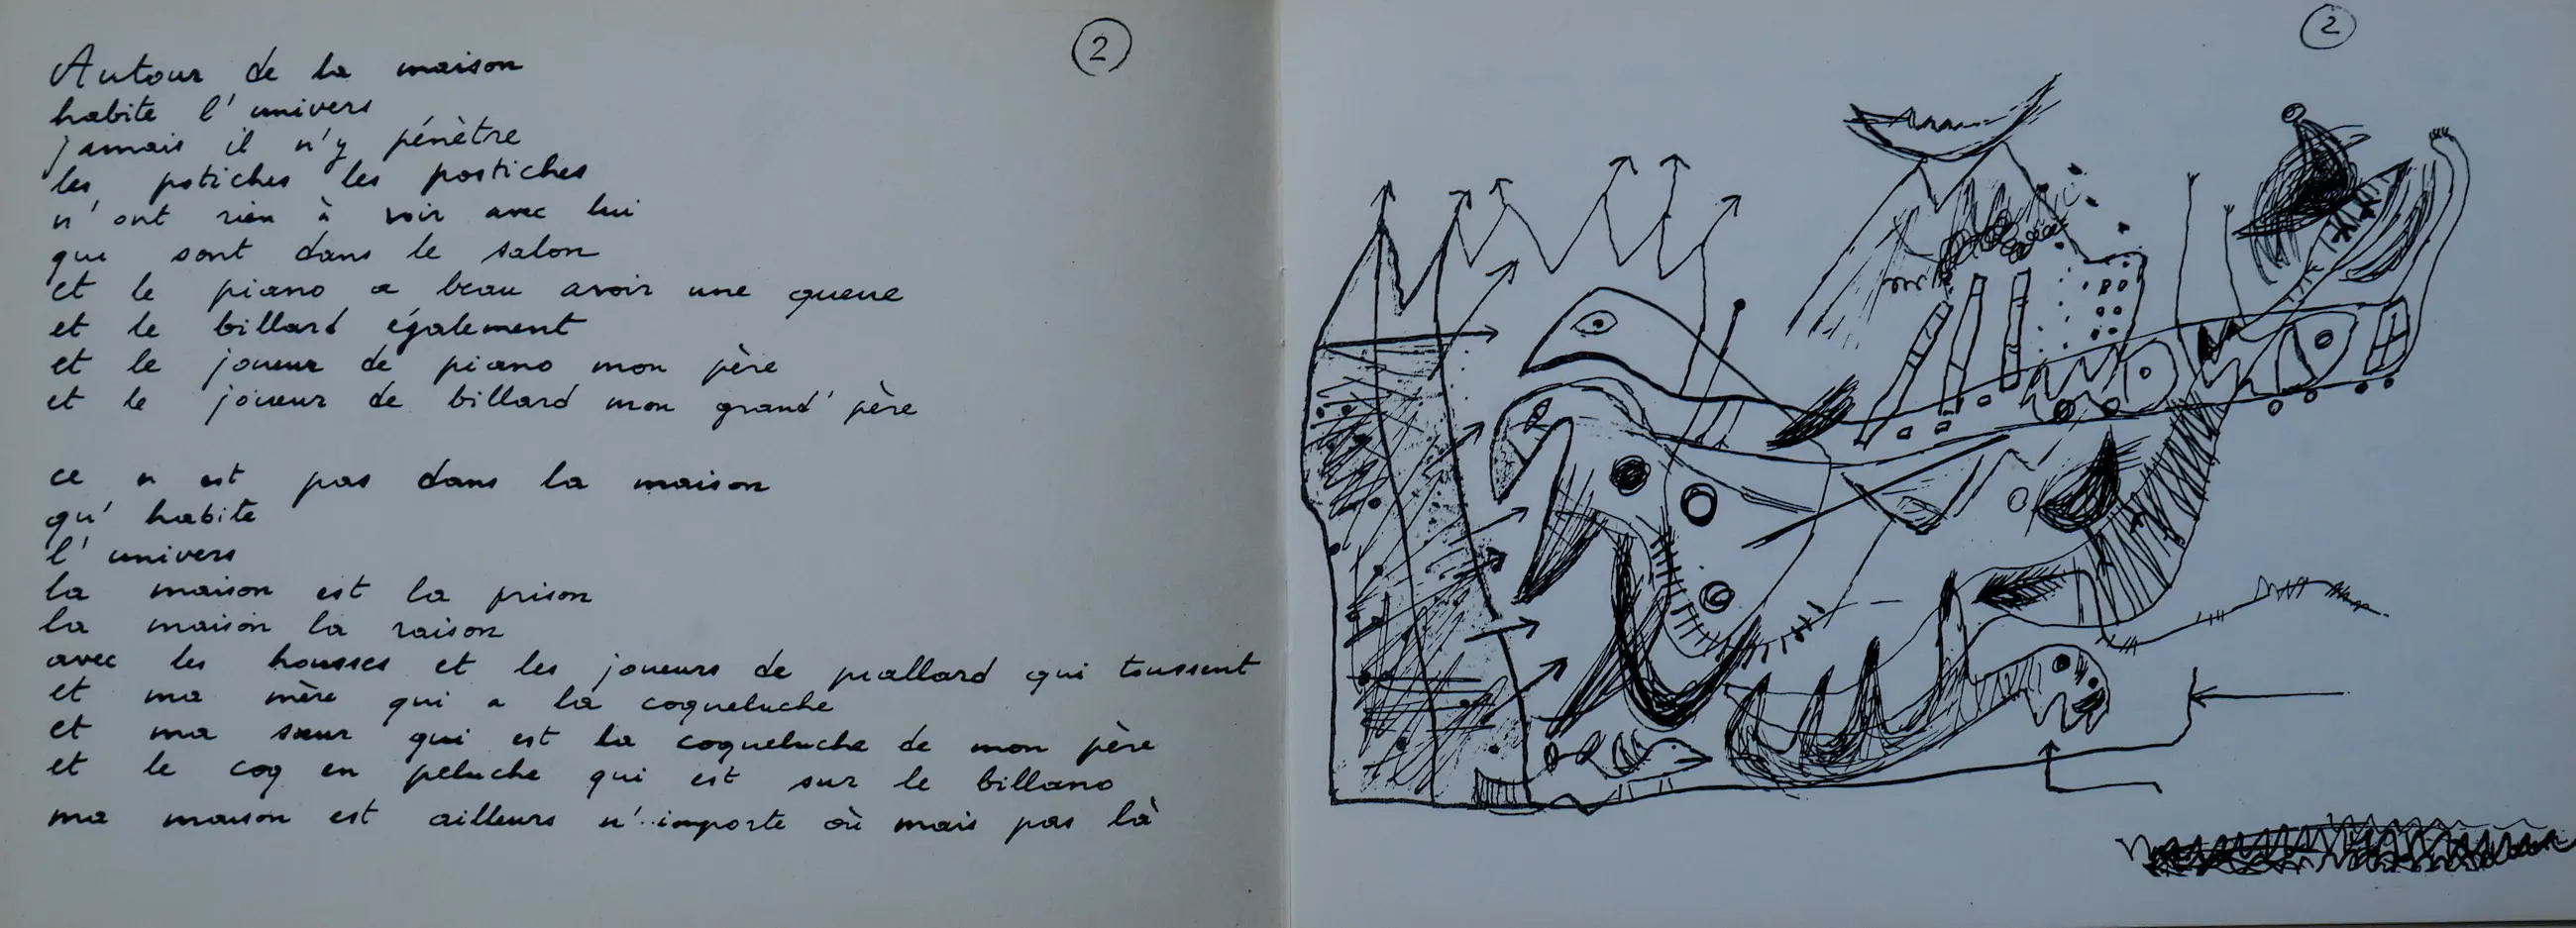 2
Autour de la maison
habite l'univers
jamais il n'y pénètre
les potiches les postiches
n'ont rien à voir avec lui
qui sont dans le salon
et le piano a beau avoir une queue
et le billard également
et le joueur de piano mon père
et le joueur de billard mon grand'père
ce n est pas dans la maison
qu'habite
l'univers
la maison est la prison
la maison la raison
avec les housses et les joueurs de piallard qui toussent
et ma mère qui a la coqueluche
et ma sœur qui est la coqueluche de mon père
et le coq en peluche qui est sur le billano
ma maison est ailleurs n'importe où mais pas là
2